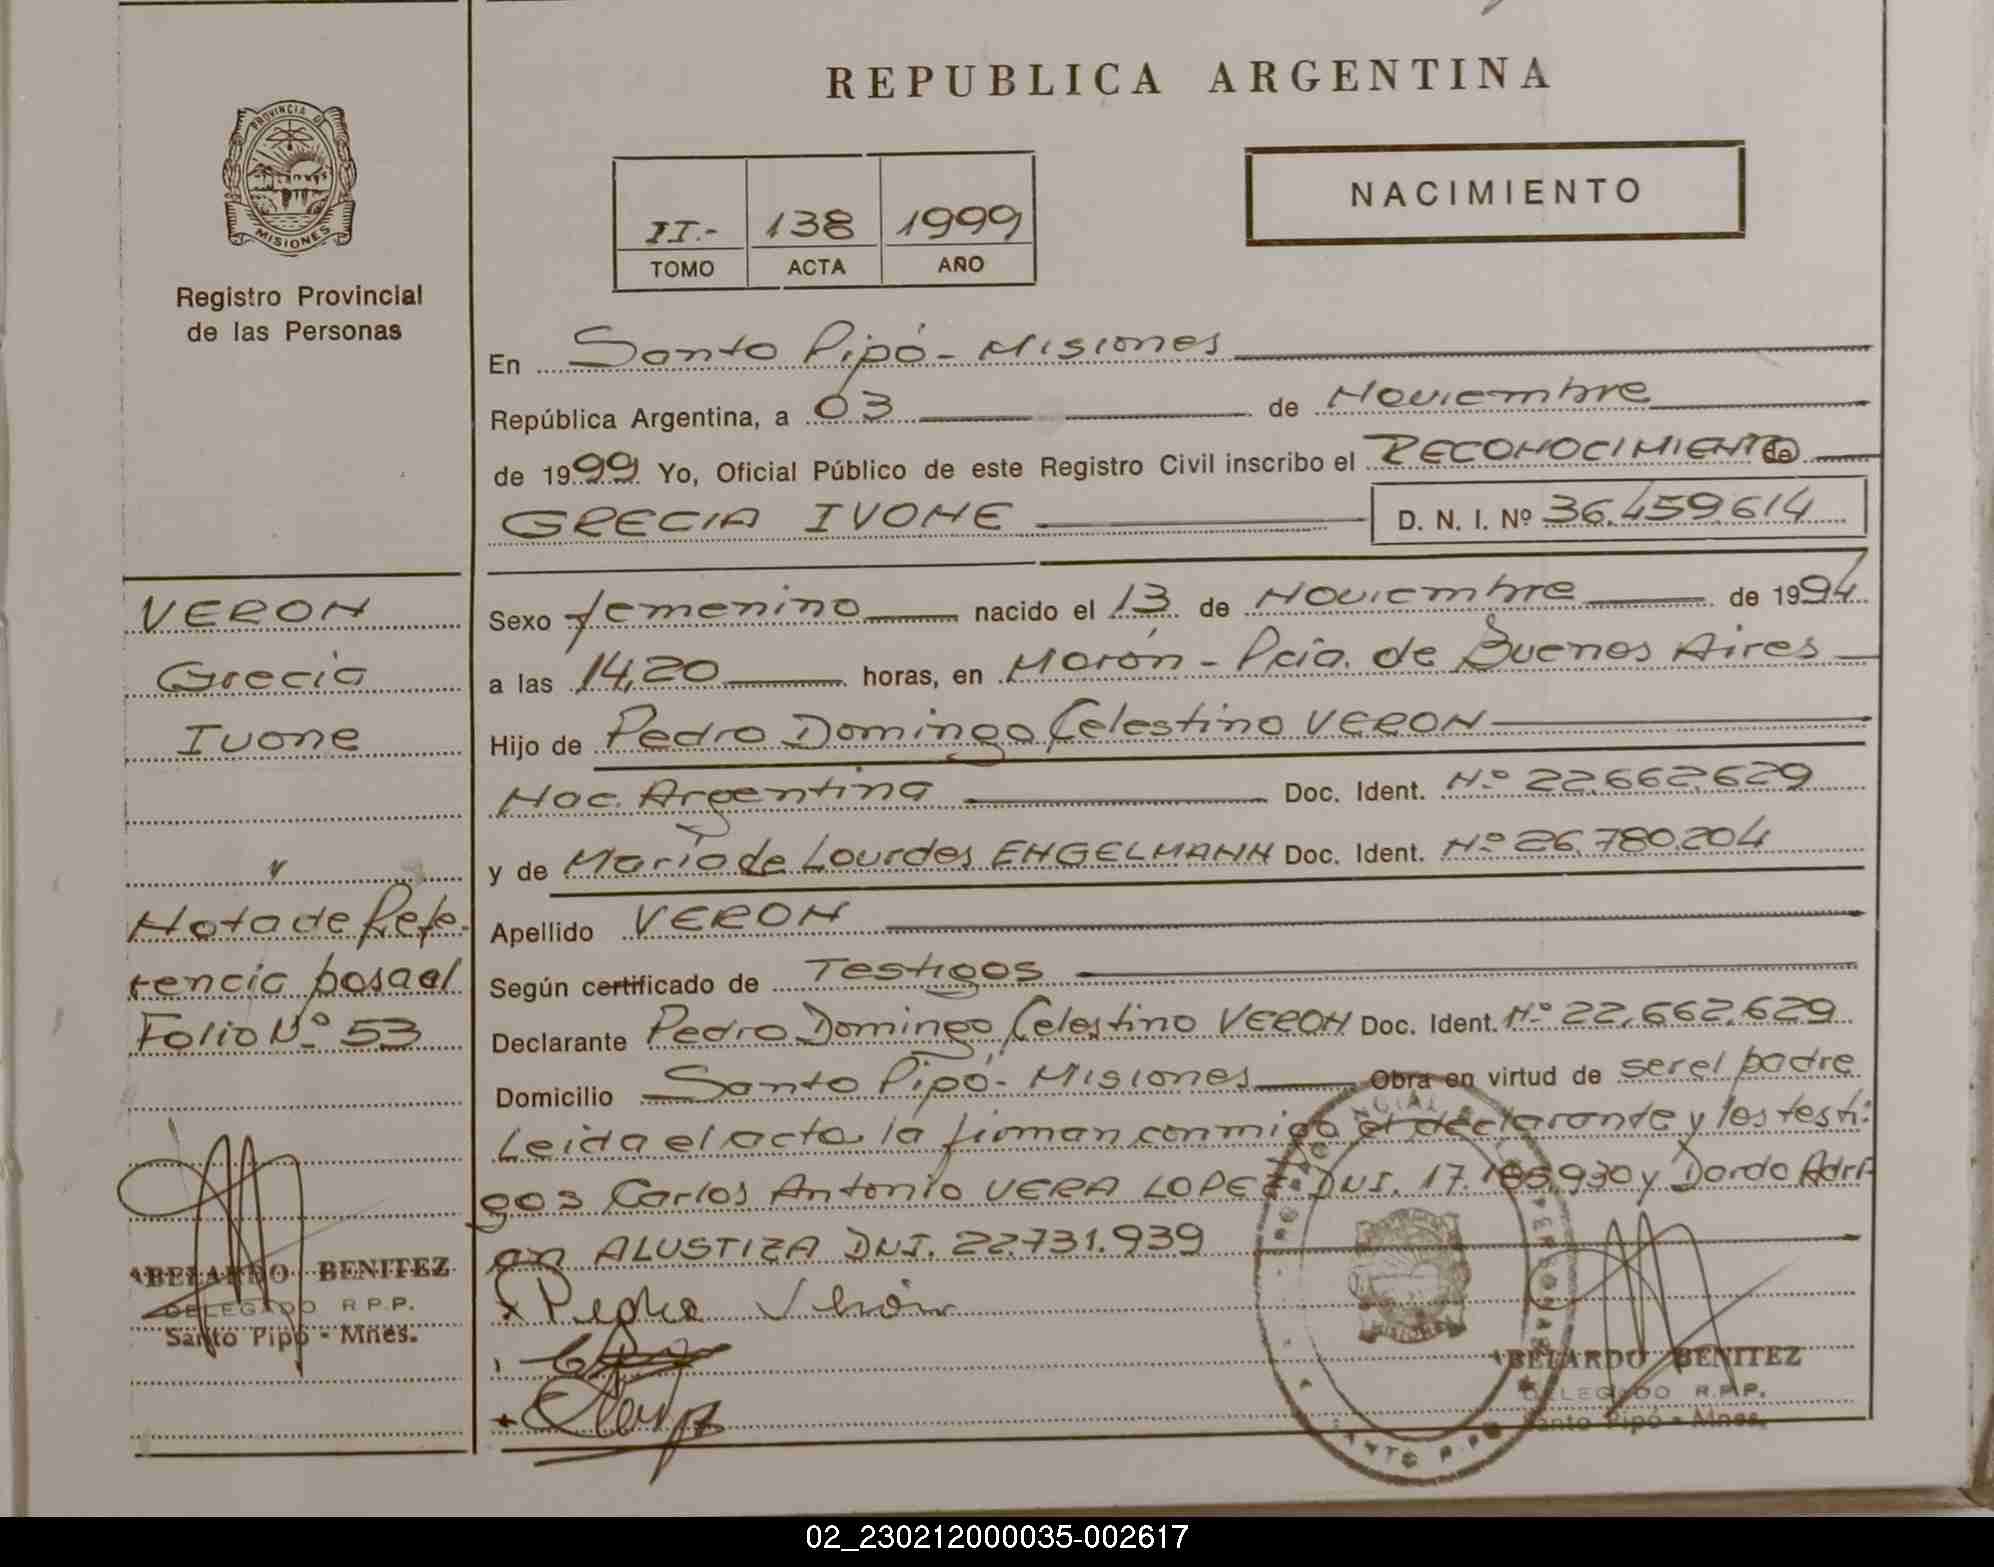 REPUBLICA ARGENTINA
PROVINCIA DE
MISIONES
Registro Provincial
de las Personas
NACIMIENTO
II.- 138 1999
TOMO ACTA AÑO
En Santo Pipó - Misiones
República Argentina, a 03 de Noviembre
de 1999 Yo, Oficial Público de este Registro Civil inscribo el RECONOCIMIENTO de
GRECIA IVONE D. N. I. Nº 36.459.614
VERON
Grecia
Ivone
Sexo femenino nacido el 13 de Noviembre de 1994
a las 14,20 horas, en Morón - Pcia. de Buenos Aires
Hijo de Pedro Domingo Celestino VERON
Nac. Argentina Doc. Ident. Nº 22.662.629
y de María de Lourdes ENGELMANN Doc. Ident. Nº 26.780.204
Apellido VERON
Según certificado de Testigos
Declarante Pedro Domingo Celestino VERON Doc. Ident. Nº 22.662.629
Domicilio Santo Pipó - Misiones Obra en virtud de ser el padre
Leida el acta la firman conmigo el declarante y los testi-
gos Carlos Antonio VERA LOPEZ DNI. 17. .930 y Dardo Adri
an ALUSTIZA DNI. 22.731.939
Nota de Refe-
rencia pasa al
Folio Nº 53
x Pedro Verón
ABELARDO BENITEZ
DELEGADO R.P.P.
Santo Pipó - Mnes.
ABELARDO BENITEZ
DELEGADO R.P.P.
Santo Pipó - Mnes.
SANTO PIPO
MISIONES
02_230212000035-002617